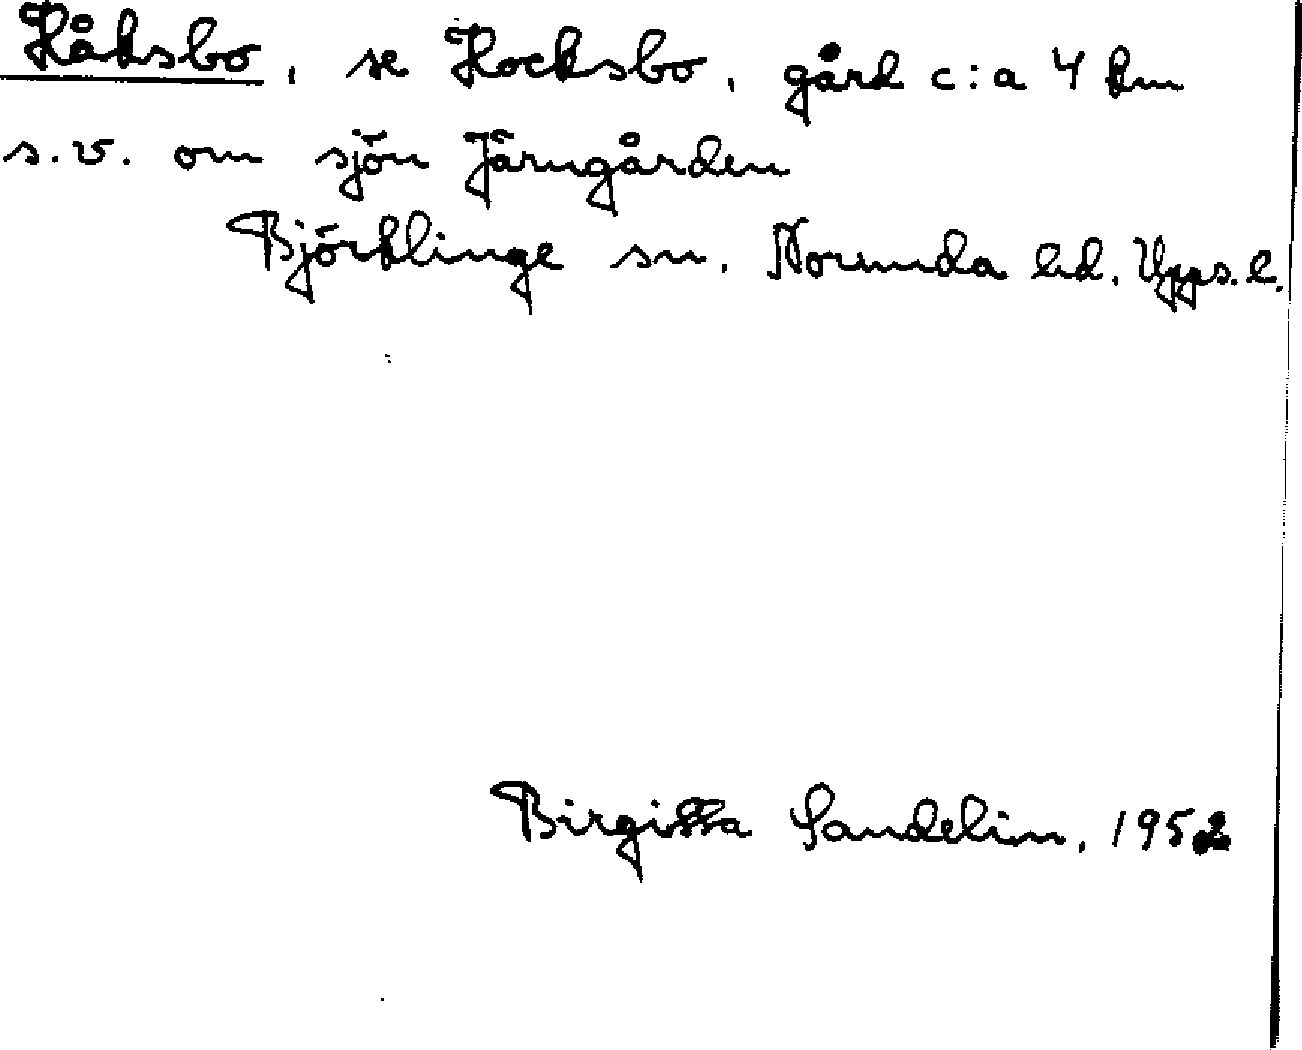 Håksbo, se Hocksbo, gård c:a 4 km
s.v. om sjön Järngården
Björklinge sn. Norunda hd. Upps. l.
Birgitta Sandelin, 1952